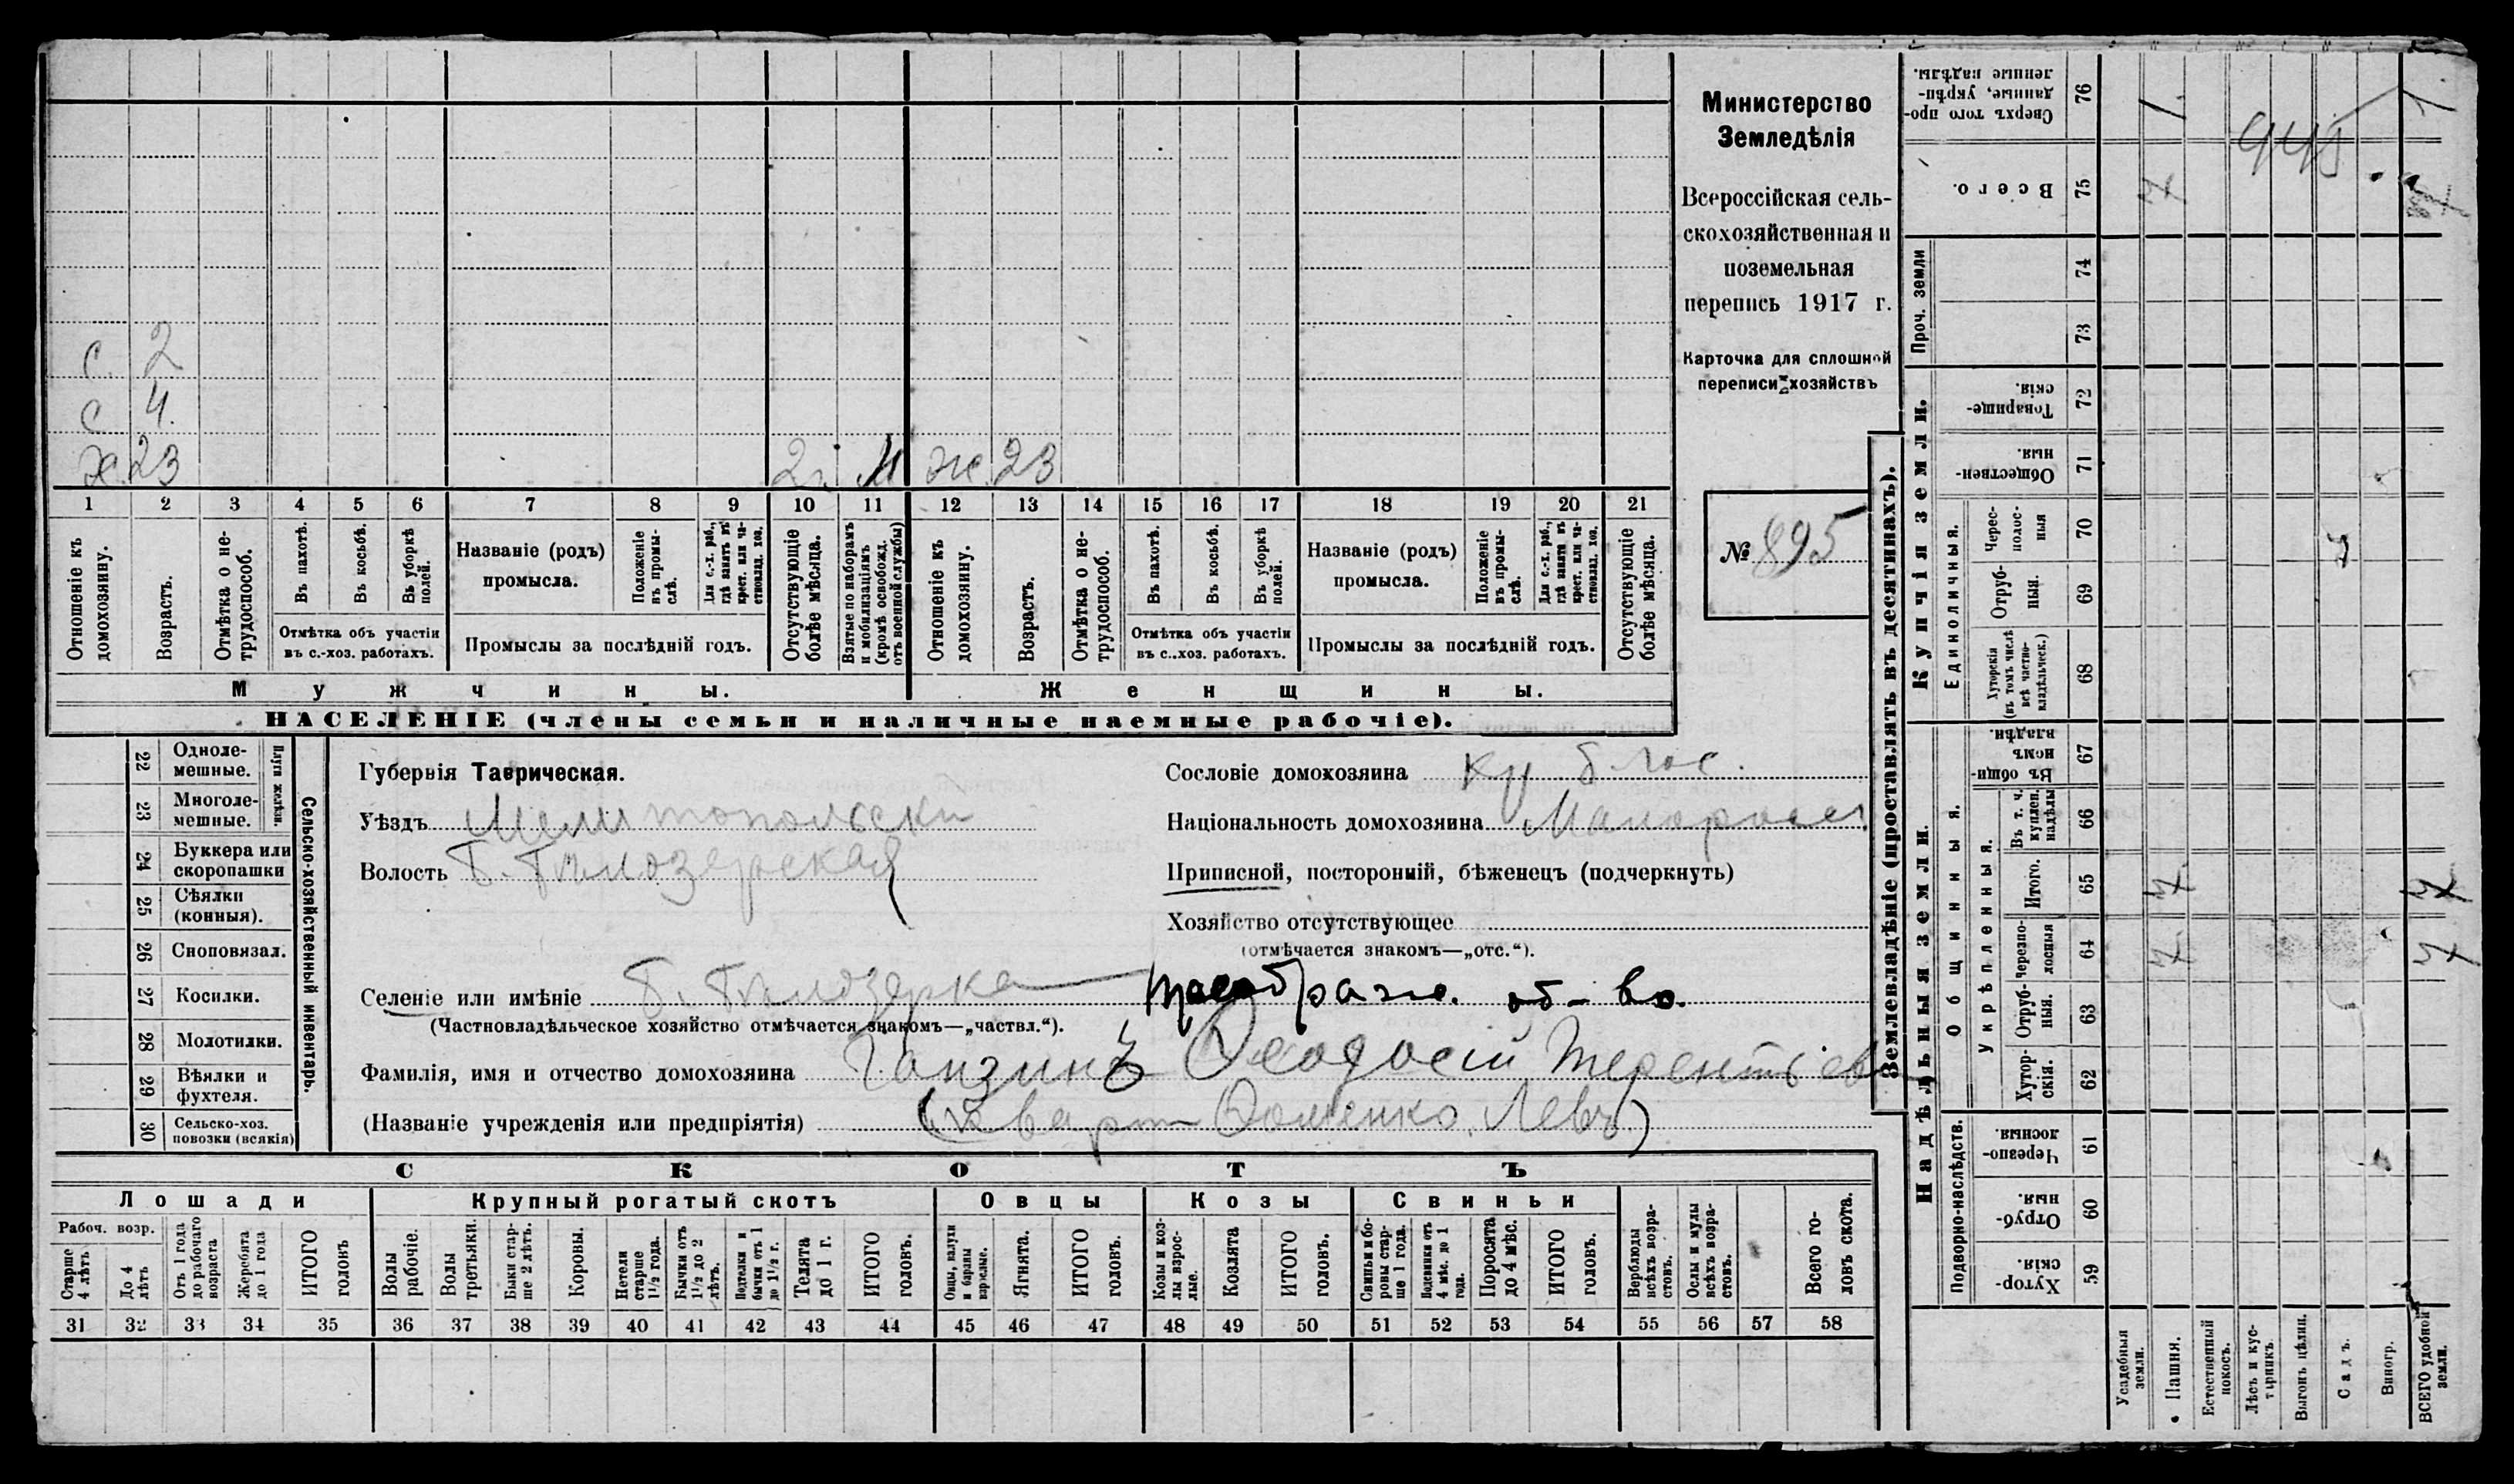 с 2
с 4.
х. 23 2г. М ж. 23
1 2 3 4 5 6 7 8 9 10 11 12 13 14 15 16 17 18 19 20 21
Отношеніе къ домохозяину.
Возрастъ.
Отмѣтка о нетрудоспособ.
Въ пахотѣ.
Въ косьбѣ.
Въ уборкѣ полей.
Отмѣтка объ участіи
въ с.-хоз. работахъ.
Названіе (родъ)
промысла.
Положеніе въ промыслѣ.
Для с.-х. раб., гдѣ занятъ въ крест. или частновлад. хоз.
Промыслы за послѣдній годъ.
Отсутствующіе болѣе мѣсяца.
Взятые по наборамъ и мобилизаціямъ (кромѣ освобожд. отъ военной службы)
Отношеніе къ домохозяину.
Возрастъ.
Отмѣтка о нетрудоспособ.
Въ пахотѣ.
Въ косьбѣ.
Въ уборкѣ полей.
Отмѣтка объ участіи
въ с..хоз. работахъ.
Названіе (родъ)
промысла.
Положеніе въ промыслѣ.
Для с.-х. раб., гдѣ занята въ крест. или частновлад. хоз.
Промыслы за послѣдній годъ.
Отсутствующіе болѣе мѣсяца.
Мужчины.
Женщины.
НАСЕЛЕНІЕ (члены семьи и наличные наемные рабочіе).
Министерство
Земледѣлія
Всероссійская сель-
скохозяйственная и
поземельная
перепись 1917 г.
Карточка для сплошной
переписи хозяйствъ
№ 895
22 Одноле-
мешные.
23 Многоле-
мешные.
Плуги желѣзн.
24 Буккера или
скоропашки
25 Сѣялки
(конныя).
26 Сноповязал.
27 Косилки.
28 Молотилки.
29 Вѣялки и
фухтеля.
30 Сельско-хоз.
повозки (всякія)
Сельско-хозяйственный инвентарь.
Губернія Таврическая.
Уѣздъ Мелитопольски
Волость Б. Бѣлозерская
Селеніе или имѣніе Б. Бѣлозерка Преображ. об-во.
(Частновладѣльческое хозяйство отмѣчается знакомъ—„частвл.“).
Фамилія, имя и отчество домохозяина Ганзинъ Феодосій Терентьев
(Названіе учрежденія или предпріятія) (кварт Доменко Левъ)
Сословіе домохозяина
Національность домохозяина Малоросс.
Приписной, посторонній, бѣженецъ (подчеркнуть)
Хозяйство отсутствующее
(отмѣчается знакомъ—„отс.“).
СКОТЪ
Лошади
Крупный рогатый скотъ
Овцы
Козы
Свиньи
Рабоч. возр.
Старше 4 лѣтъ
До 4 лѣтъ
Отъ 1 года до рабочаго возраста
Жеребята до 1 года
ИТОГО головъ
Волы рабочіе.
Волы третьяки.
Быки старше 2 лѣтъ.
Коровы.
Нетели старше 1½ года.
Бычки отъ 1½ до 2 лѣтъ.
Подтелки и бычки отъ 1 до 1½ г.
Телята до 1 г.
ИТОГО головъ.
Овцы, валухи и бараны взрослые.
Ягнята.
ИТОГО головъ.
Козы и козлы взрослые.
Козлята
ИТОГО головъ.
Свиньи и боровы старше 1 года.
Подсвинки отъ 4 мѣс. до 1 года.
Поросята до 4 мѣс.
ИТОГО головъ.
Верблюды всѣхъ возрастовъ.
Ослы и мулы всѣхъ возрастовъ.
Всего головъ скота.
31 32 33 34 35 36 37 38 39 40 41 42 43 44 45 46 47 48 49 50 51 52 53 54 55 56 57 58
Землевладѣніе (проставлять въ десятинахъ).
Надѣльныя земли.
Купчія земли.
Проч. земли
Подворно-наслѣдств.
Общинныя.
Укрѣпленныя.
Единоличныя.
59 Хутор-
скія.
60 Отруб-
ныя.
61 Черезпо-
лосныя.
62 Хутор-
скія.
63 Отруб-
ныя.
64 Черезпо-
лосныя
65 Итого.
66 Въ т. ч.
куплен.
надѣлы
67 Въ общин-
номъ
владѣн.
68 Хуторскія
(въ томъ числѣ
всѣ частно-
владѣльческ.)
69 Отруб-
ныя.
70 Черес-
полос-
ныя
71 Обществен-
ныя.
72 Товарище-
скія.
73
74
75 Всего.
76 Сверхъ того про-
данные, укрѣп-
ленные надѣлы.
Усадебныя земли.
Пашня.
Естественный покосъ.
Лѣсъ и кустарникъ.
Выгонъ цѣлин.
Садъ.
Виногр.
ВСЕГО удобной земли.
945